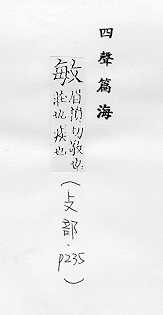 四聲篇海
敏
眉殞切敬也
莊也疾也
(攴部.p235)